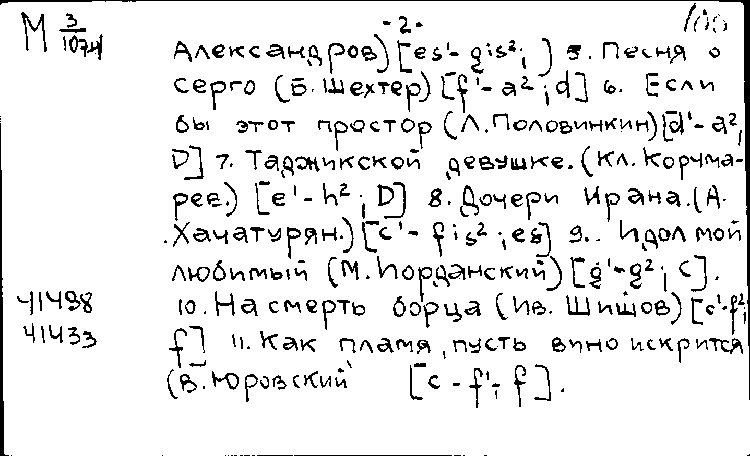 М 3/1074
-2-
100
Александров) [es¹- gis²; ] 5. Песня о
серго (Б. Шехтер) [f¹- a²; d] 6. Если
бы этот простор (Л. Половинкин) [d¹- a²,
D] 7. Таджикской девушке. (Кл. Корчма-
рев.) [e¹- h²; D] 8. Дочери Ирана. (А.
Хачатурян.) [c¹- fis²; es] 9. Идол мой
любимый (М. Иорданский) [g¹-g²; C].
41498
10. На смерть борца (Ив. Шишов) [c¹-f²,
41433
f] 11. Как пламя, пусть вино искрится
(В. Юровский [c - f¹; f].